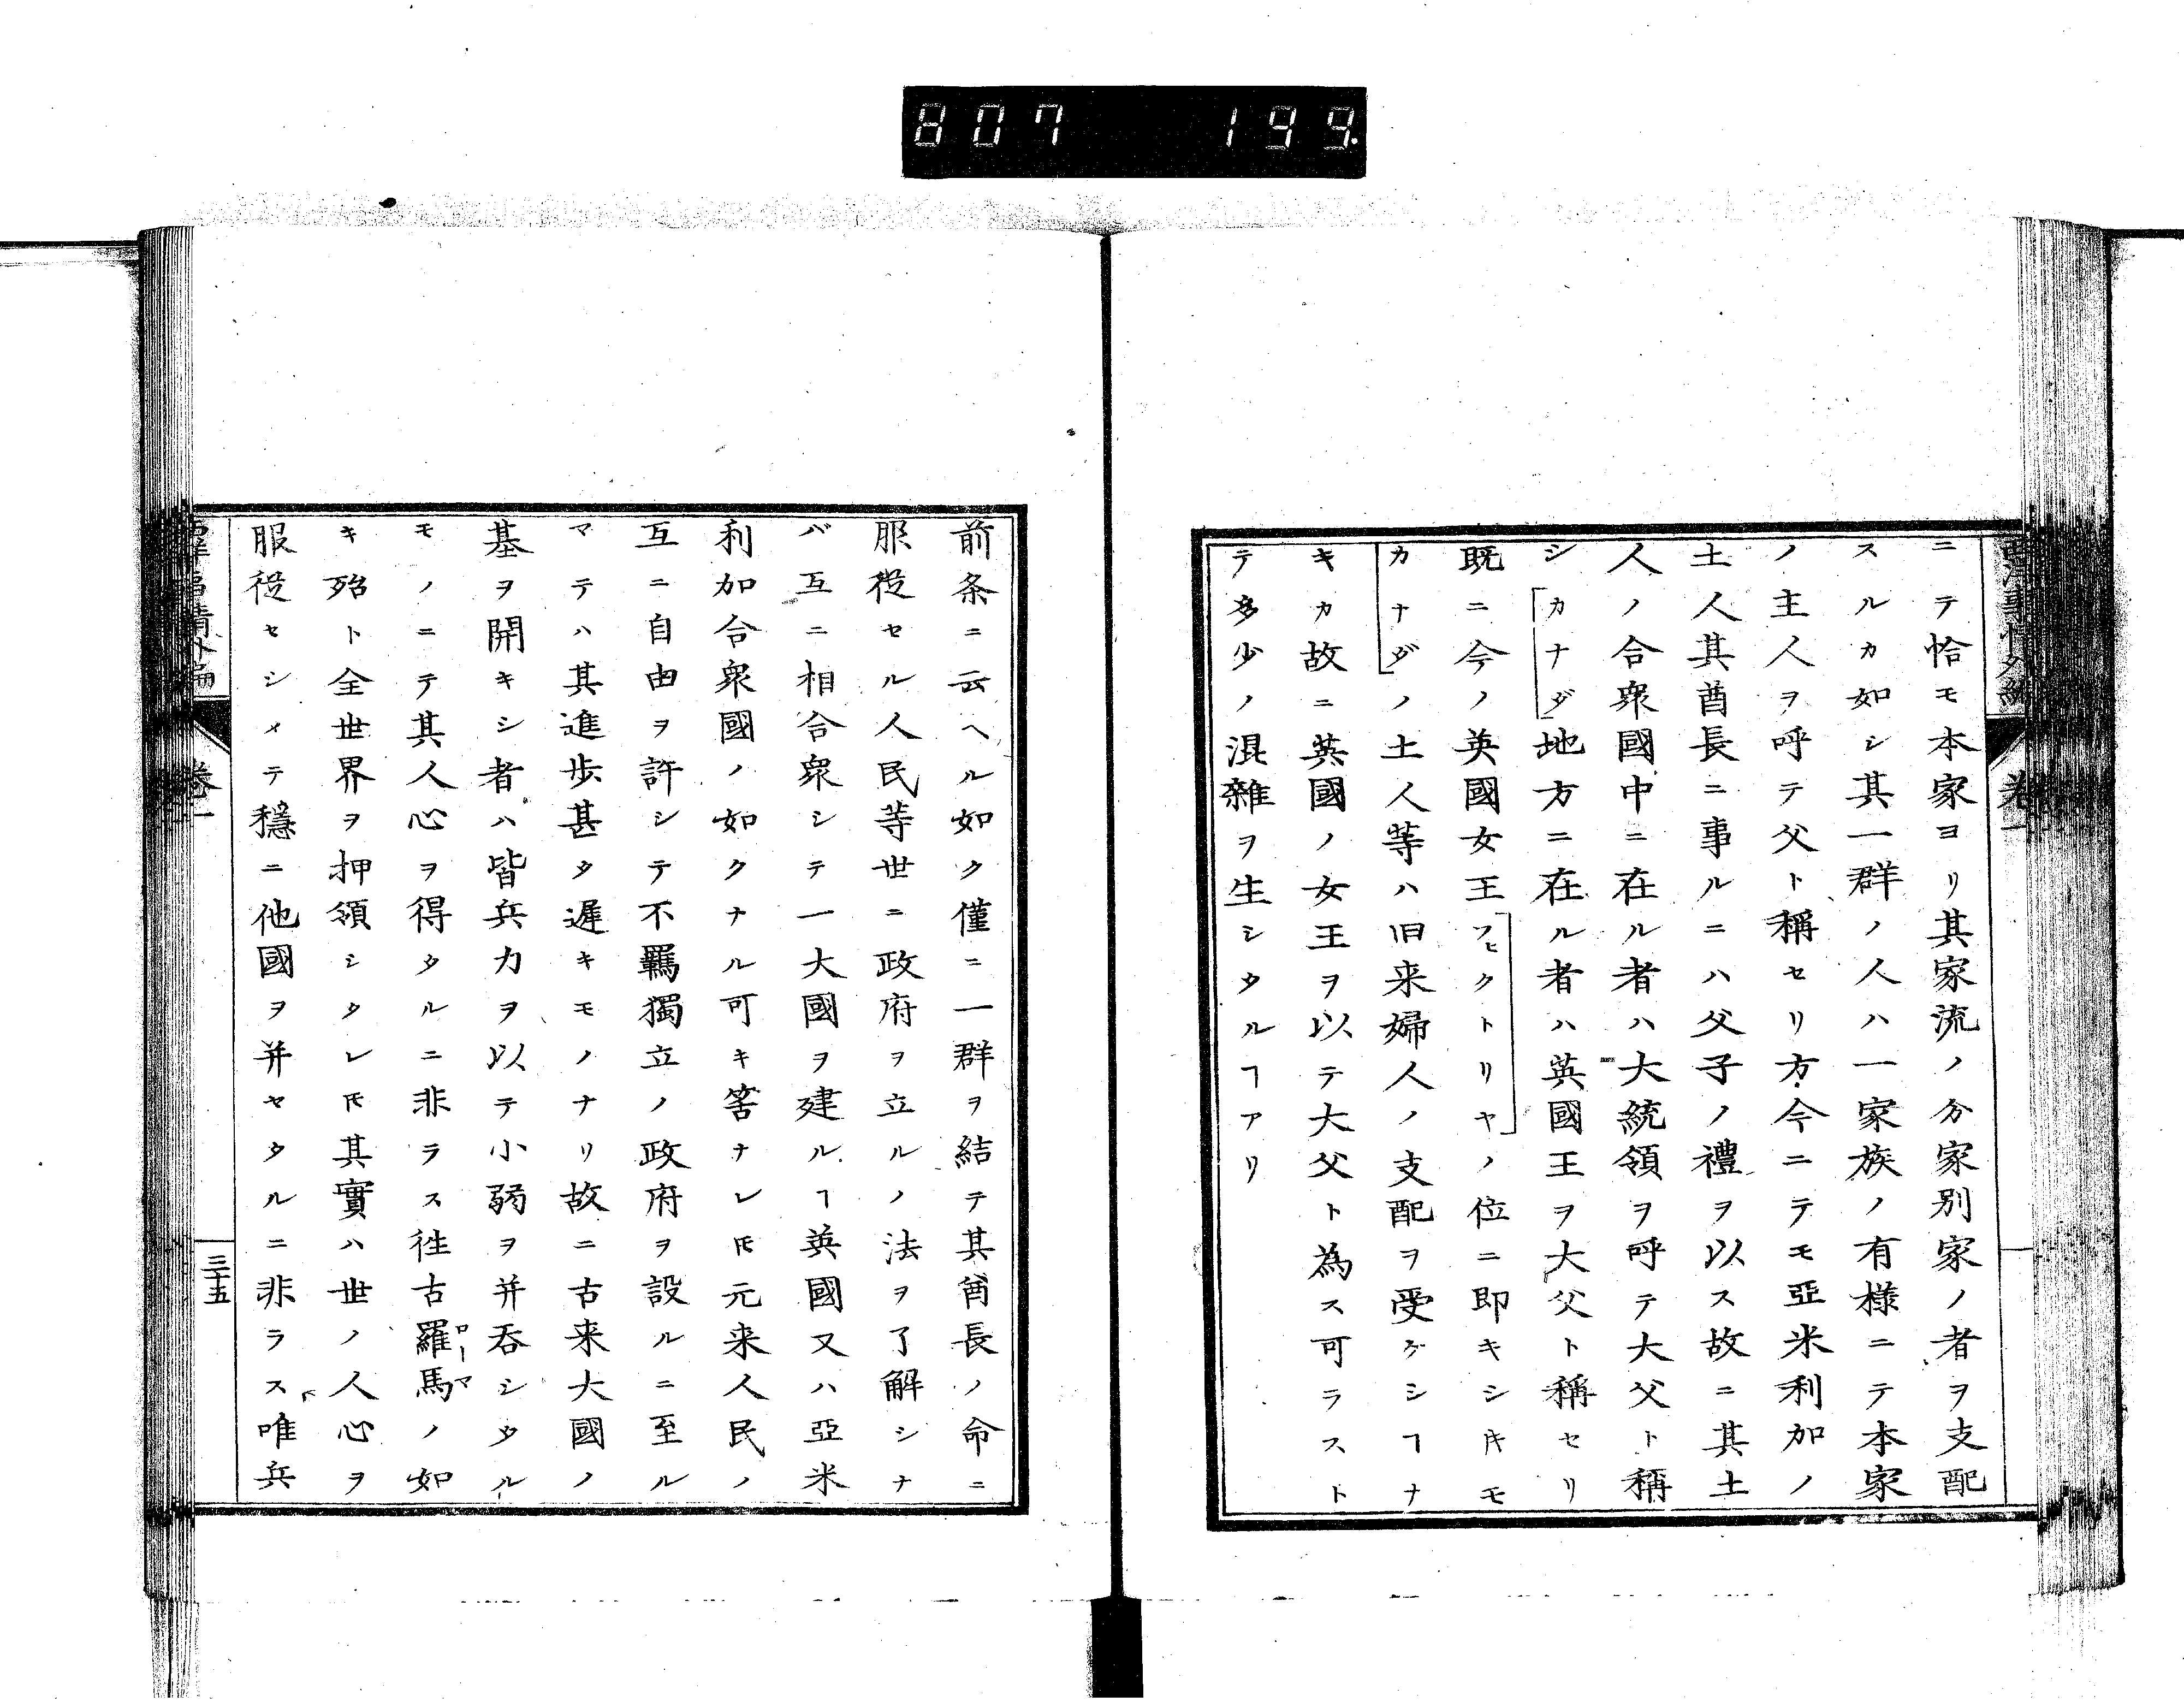 807 199
西洋事情外編 巻一
ニテ恰モ本家ヨリ其家流ノ分家別家ノ者ヲ支配
スルカ如シ其一群ノ人ハ一家族ノ有様ニテ本家
ノ主人ヲ呼テ父ト稱セリ方今ニテモ亞米利加ノ
土人其酋長ニ事ルニハ父子ノ禮ヲ以ス故ニ其土
人ノ合衆國中ニ在ル者ハ大統領ヲ呼テ大父ト稱
シ「カナダ」地方ニ在ル者ハ英國王ヲ大父ト稱セリ
既ニ今ノ英國女王「フヒクトリヤ」ノ位ニ即キシキモ
カナダノ土人等ハ旧来婦人ノ支配ヲ受ケシヿナ
キカ故ニ英國ノ女王ヲ以テ大父ト為ス可ラスト
テ多少ノ混雜ヲ生シタルヿアリ
前条ニ云ヘル如ク僅ニ一群ヲ結テ其酋長ノ命ニ
服從セル人民等世ニ政府ヲ立ルノ法ヲ了解シナ
バ互ニ相合衆シテ一大國ヲ建ルヿ英國又ハ亞米
利加合衆國ノ如クナル可キ筈ナレ𪜈元来人民ノ
互ニ自由ヲ許シテ不羈獨立ノ政府ヲ設ルニ至ル
マテハ其進歩甚タ遲キモノナリ故ニ古来大國ノ
基ヲ開キシ者ハ皆兵力ヲ以テ小弱ヲ并吞シタル
モノニテ其人心ヲ得タルニ非ラス徃古羅馬ローマノ如
キ殆ト全世界ヲ押領シタレ𪜈其實ハ世ノ人心ヲ
服從セシメテ穩ニ他國ヲ并セタルニ非ラス唯兵
西洋事情外編 巻一 三十五